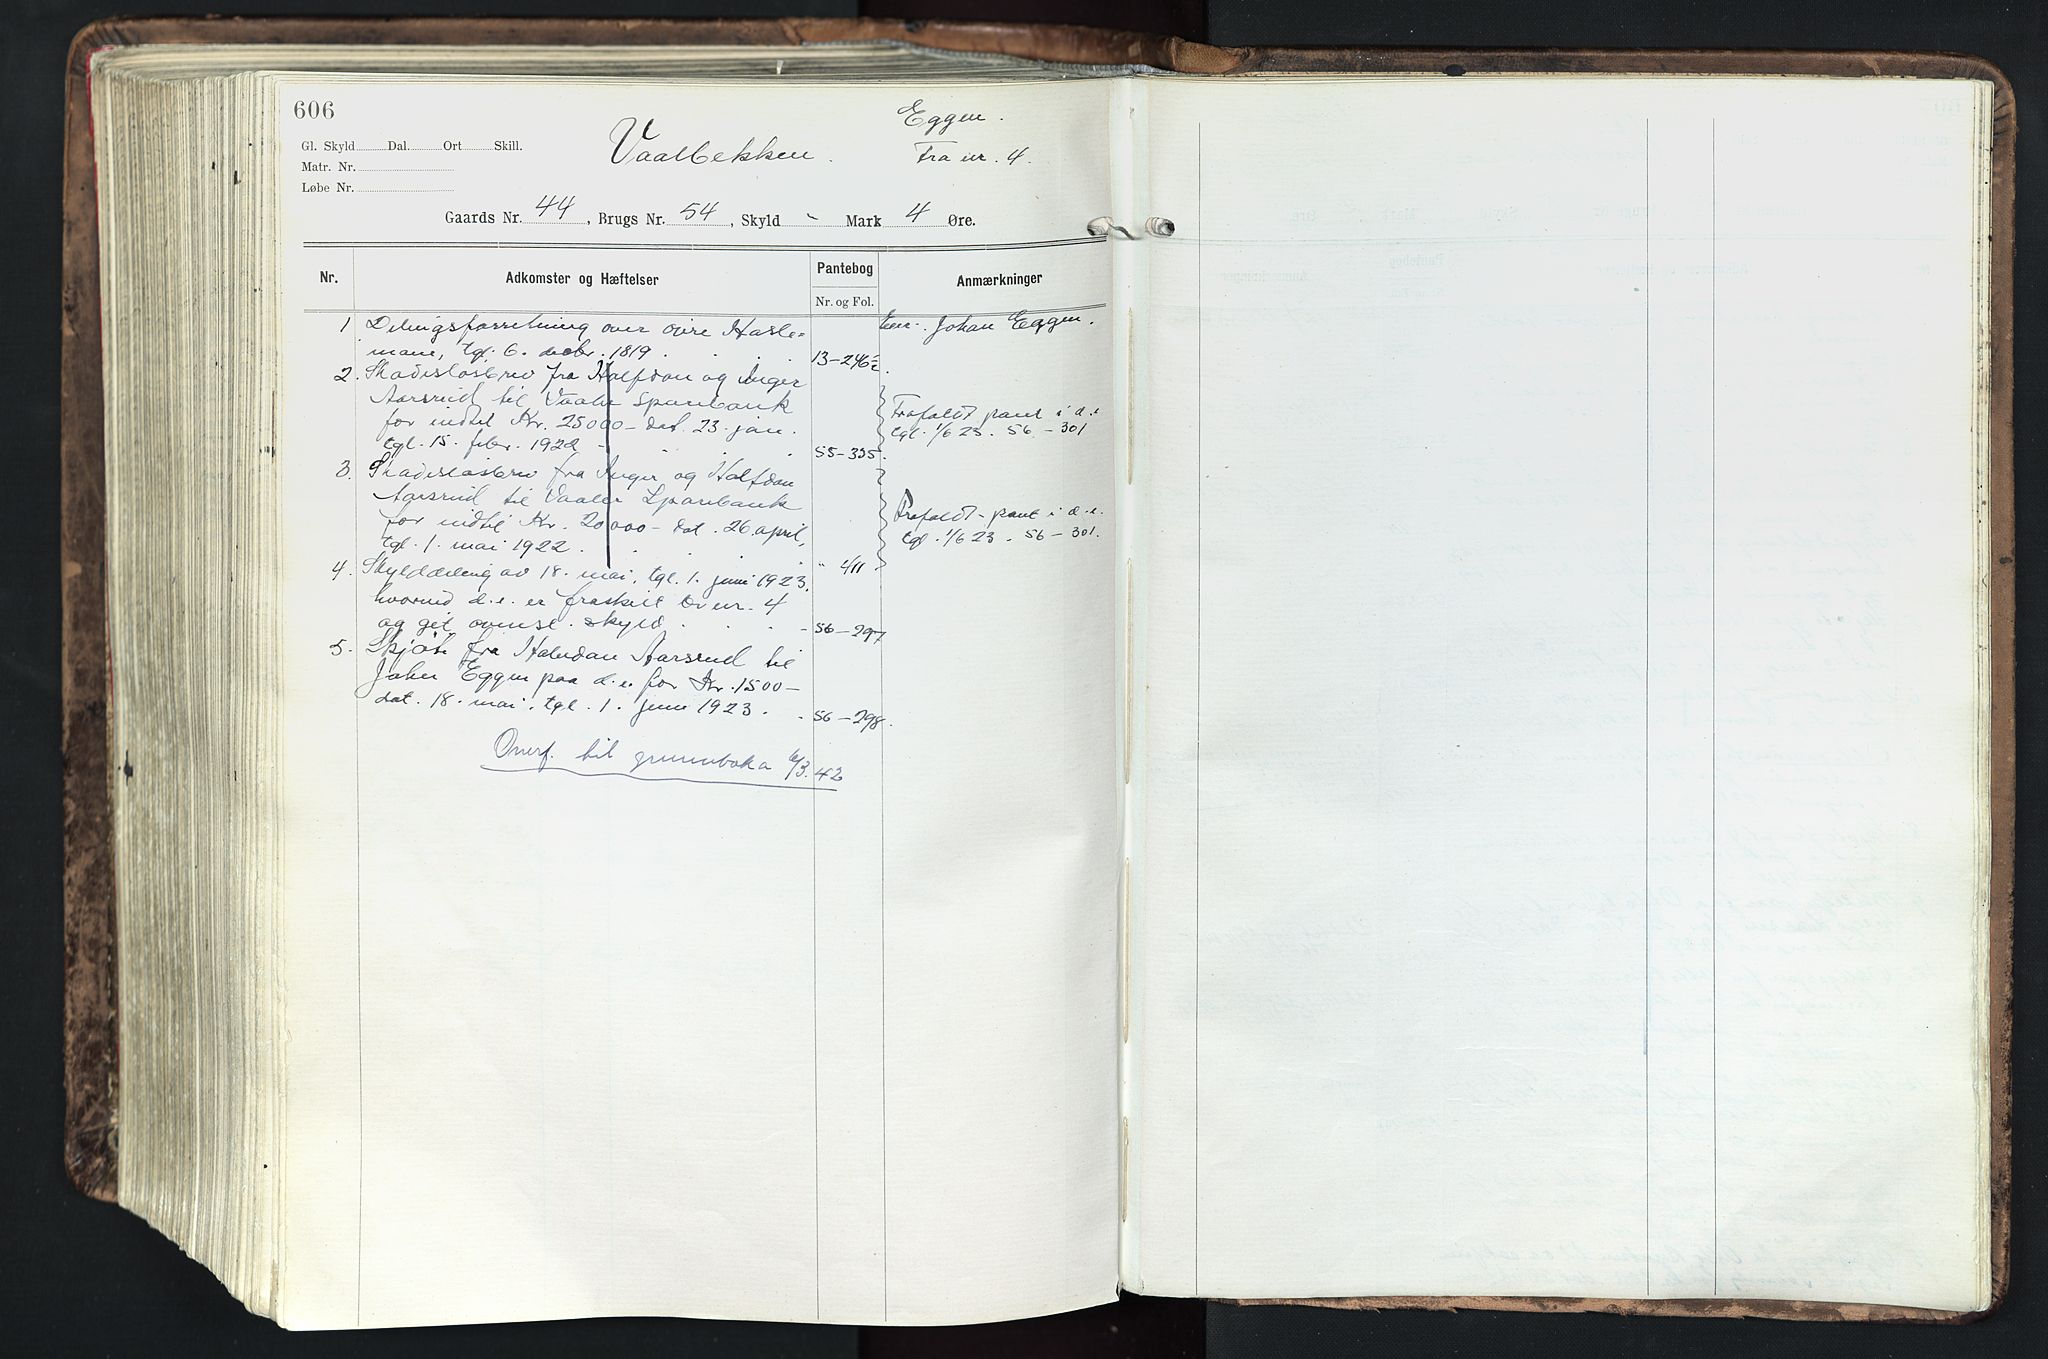 606
Eggen.
Vaalbekken.
Fra nr. 4.
Gl. Skyld Dal. Ort Skill.
Matr. Nr.
Løbe Nr.
Gaards Nr. 44, Brugs Nr. 54, Skyld " Mark 4 Øre.
Nr. Adkomster og Hæftelser Pantebog Anmærkninger
Nr. og Fol.
1 Delingsforretning over øvre Hasle- Eier: Johan Eggen.
mæne, tgl. 6. decbr. 1819. 13-246
2. Skadesløsbrev fra Halfdan og Inger
Aarsrud til Vaaler Sparebank
for indtil Kr. 25000- dat. 23. jan.
tgl. 15. febr. 1922 - 55-335.
Frafaldt pant i d.e.
tgl. 1/6 23. 56-301
3 Skadesløsbrev fra Inger og Halfdan
Aarsrud til Vaaler Sparebank
for indtil Kr. 20000- dat. 26. april,
tgl. 1. mai 1922. " 411
Frafaldt pant i d.e.
tgl. 1/6 23. 56-301.
4. Skylddeling av 18. mai, tgl. 1. juni 1923,
hvorved d.e. er fraskilt br. nr. 4
og git ovenst. skyld. 56-297
5. Skjøte fra Halvdan Aarsrud til
Johan Eggen paa d.e. for Kr. 1500-
dat. 18. mai, tgl. 1. juni 1923. 56-298.
Overf. til grunnboka 6/3.42